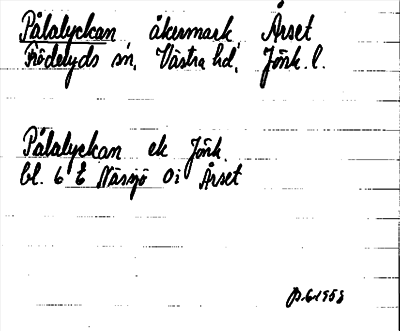 Pålalyckan, åkermark, Årset
Bredaryds sn, Västra hd, Jönk. l.
Pålalyckan ek Jönk.
bl. 6 E Nässjö Oi Årset